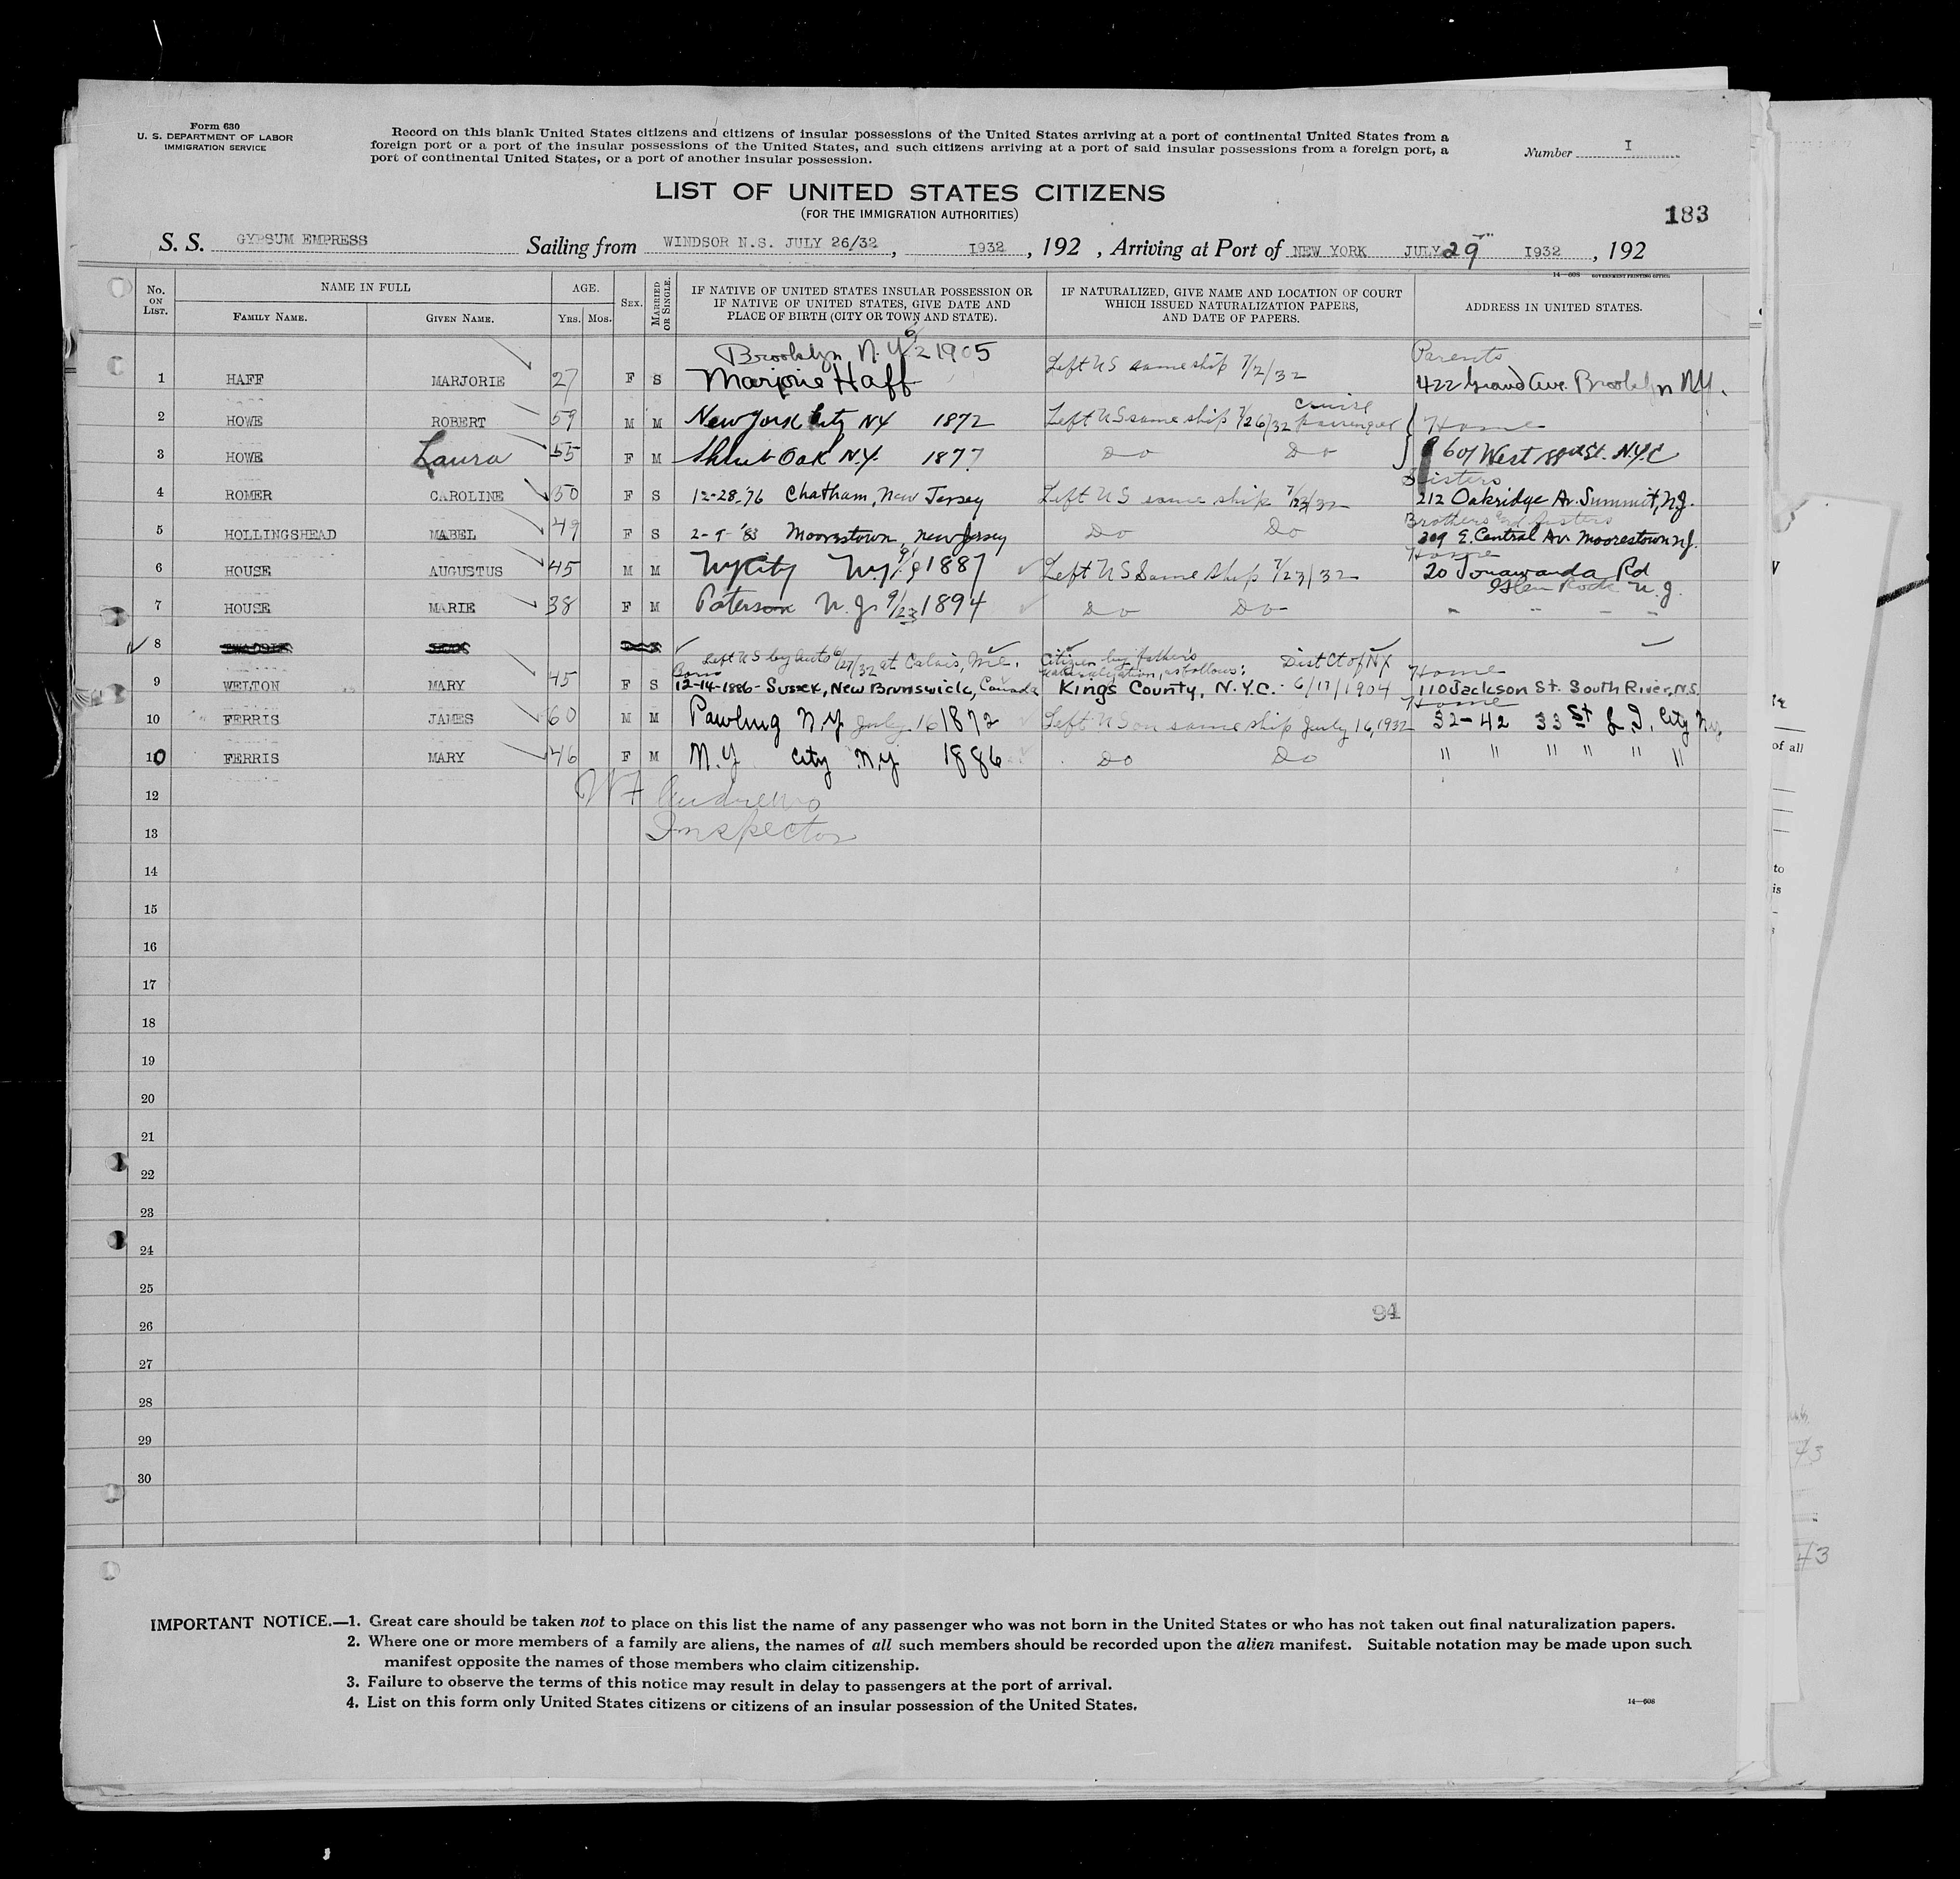 Form 630
U. S. DEPARTMENT OF LABOR
IMMIGRATION SERVICE
Record on this blank United States citizens and citizens of insular possessions of the United States arriving at a port of continental United States from a
foreign port or a port of the insular possessions of the United States, and such citizens arriving at a port of said insular possessions from a foreign port, a
port of continental United States, or a port of another insular possession.
Number I
LIST OF UNITED STATES CITIZENS
(FOR THE IMMIGRATION AUTHORITIES)
183
S. S. GYPSUM EMPRESS Sailing from WINDSOR N.S. JULY 26/32, 1932, 192 , Arriving at Port of NEW YORK JULY 29 1932, 192
14—608 GOVERNMENT PRINTING OFFICE
No. ON LIST. NAME IN FULL FAMILY NAME. GIVEN NAME. AGE. YRS. MOS. SEX. MARRIED OR SINGLE. IF NATIVE OF UNITED STATES INSULAR POSSESSION OR IF NATIVE OF UNITED STATES, GIVE DATE AND PLACE OF BIRTH (CITY OR TOWN AND STATE). IF NATURALIZED, GIVE NAME AND LOCATION OF COURT WHICH ISSUED NATURALIZATION PAPERS, AND DATE OF PAPERS. ADDRESS IN UNITED STATES.
Brooklyn, N.Y. 6/2 1905 Parents
1 HAFF MARJORIE 27 F S Marjorie Haff Left US same ship 7/2/32 422 Grand Ave. Brooklyn N.Y.
2 HOWE ROBERT 59 M M New York City NY 1872 Left US same ship 7/26/32 cruise passenger Home
3 HOWE Laura 55 F M Shrub Oak N.Y. 1877 Do Do 601 West St. N.Y.C
Sisters
4 ROMER CAROLINE 50 F S 12-28-'76 Chatham, New Jersey Left US same ship 7/23/32 212 Oakridge Av. Summit, N.J.
Brothers and sisters
5 HOLLINGSHEAD MABEL 49 F S '83 Moorestown, New Jersey Do Do 209 E. Central Av Moorestown N.J.
Home
6 HOUSE AUGUSTUS 45 M M NY City N.Y. 1887 Left US Same Ship 7/23/32 20 Tonawanda Rd
Glen Rock N.J.
7 HOUSE MARIE 38 F M Paterson N.J. 9/23 1894 Do Do " " " "
8
Left US by auto 6/27/32 at Calais, Me. Citizen by father's naturalization, as follows: Dist Ct of NY Home
9 WELTON MARY 45 F S Born 12-14-1886 - Sussex, New Brunswick, Canada Kings County, N.Y.C. - 6/17/1904 110 Jackson St. South River, N.S.
Home
10 FERRIS JAMES 60 M M Pawling N.Y July 16 1872 Left US on same ship July 16, 1932 32-42 33 St L.I. City N.Y.
10 FERRIS MARY 46 F M N.Y City N.Y 1886 Do Do " " " " " "
12 WF Andrews
13 Inspector
14
15
16
17
18
19
20
21
22
23
24
25
94
26
27
28
29
30
IMPORTANT NOTICE.—1. Great care should be taken not to place on this list the name of any passenger who was not born in the United States or who has not taken out final naturalization papers.
2. Where one or more members of a family are aliens, the names of all such members should be recorded upon the alien manifest. Suitable notation may be made upon such
manifest opposite the names of those members who claim citizenship.
3. Failure to observe the terms of this notice may result in delay to passengers at the port of arrival.
4. List on this form only United States citizens or citizens of an insular possession of the United States.
14—608
of all
to
is
43
43